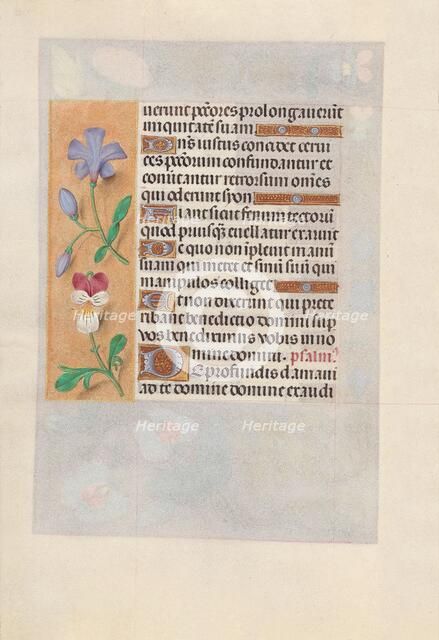 uerunt pctores prolongauerunt
iniquitatē suam
Dn̄s iustus concidet cerui
ces pctorum confundantur et
conuertantur retrorsum om̄es
qui oderunt syon
Fiant sicut fenum tectoru
quod priusq̄ euellatur exaruit
De quo non ipleuit manū
suam qui metet et sinū suū qui
manipulos colliget
Et non dixerunt qui prete
ribant benedictio domini sup
vos benediximus vobis in no
mine domini. psalm⁹
De profundis clamaui
ad te domine domine exaudi
Heritage Heritage
Heritage Heritage
Heritage Heritage